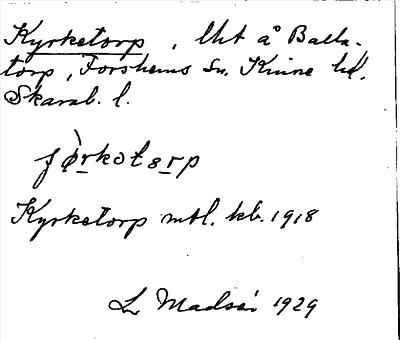 Kyrketorp, lht å Balla-
torp, Forshems sn. Kinne hd.
Skarab. l.
Kyrketorp mtl. kb. 1918
L Madsén 1929